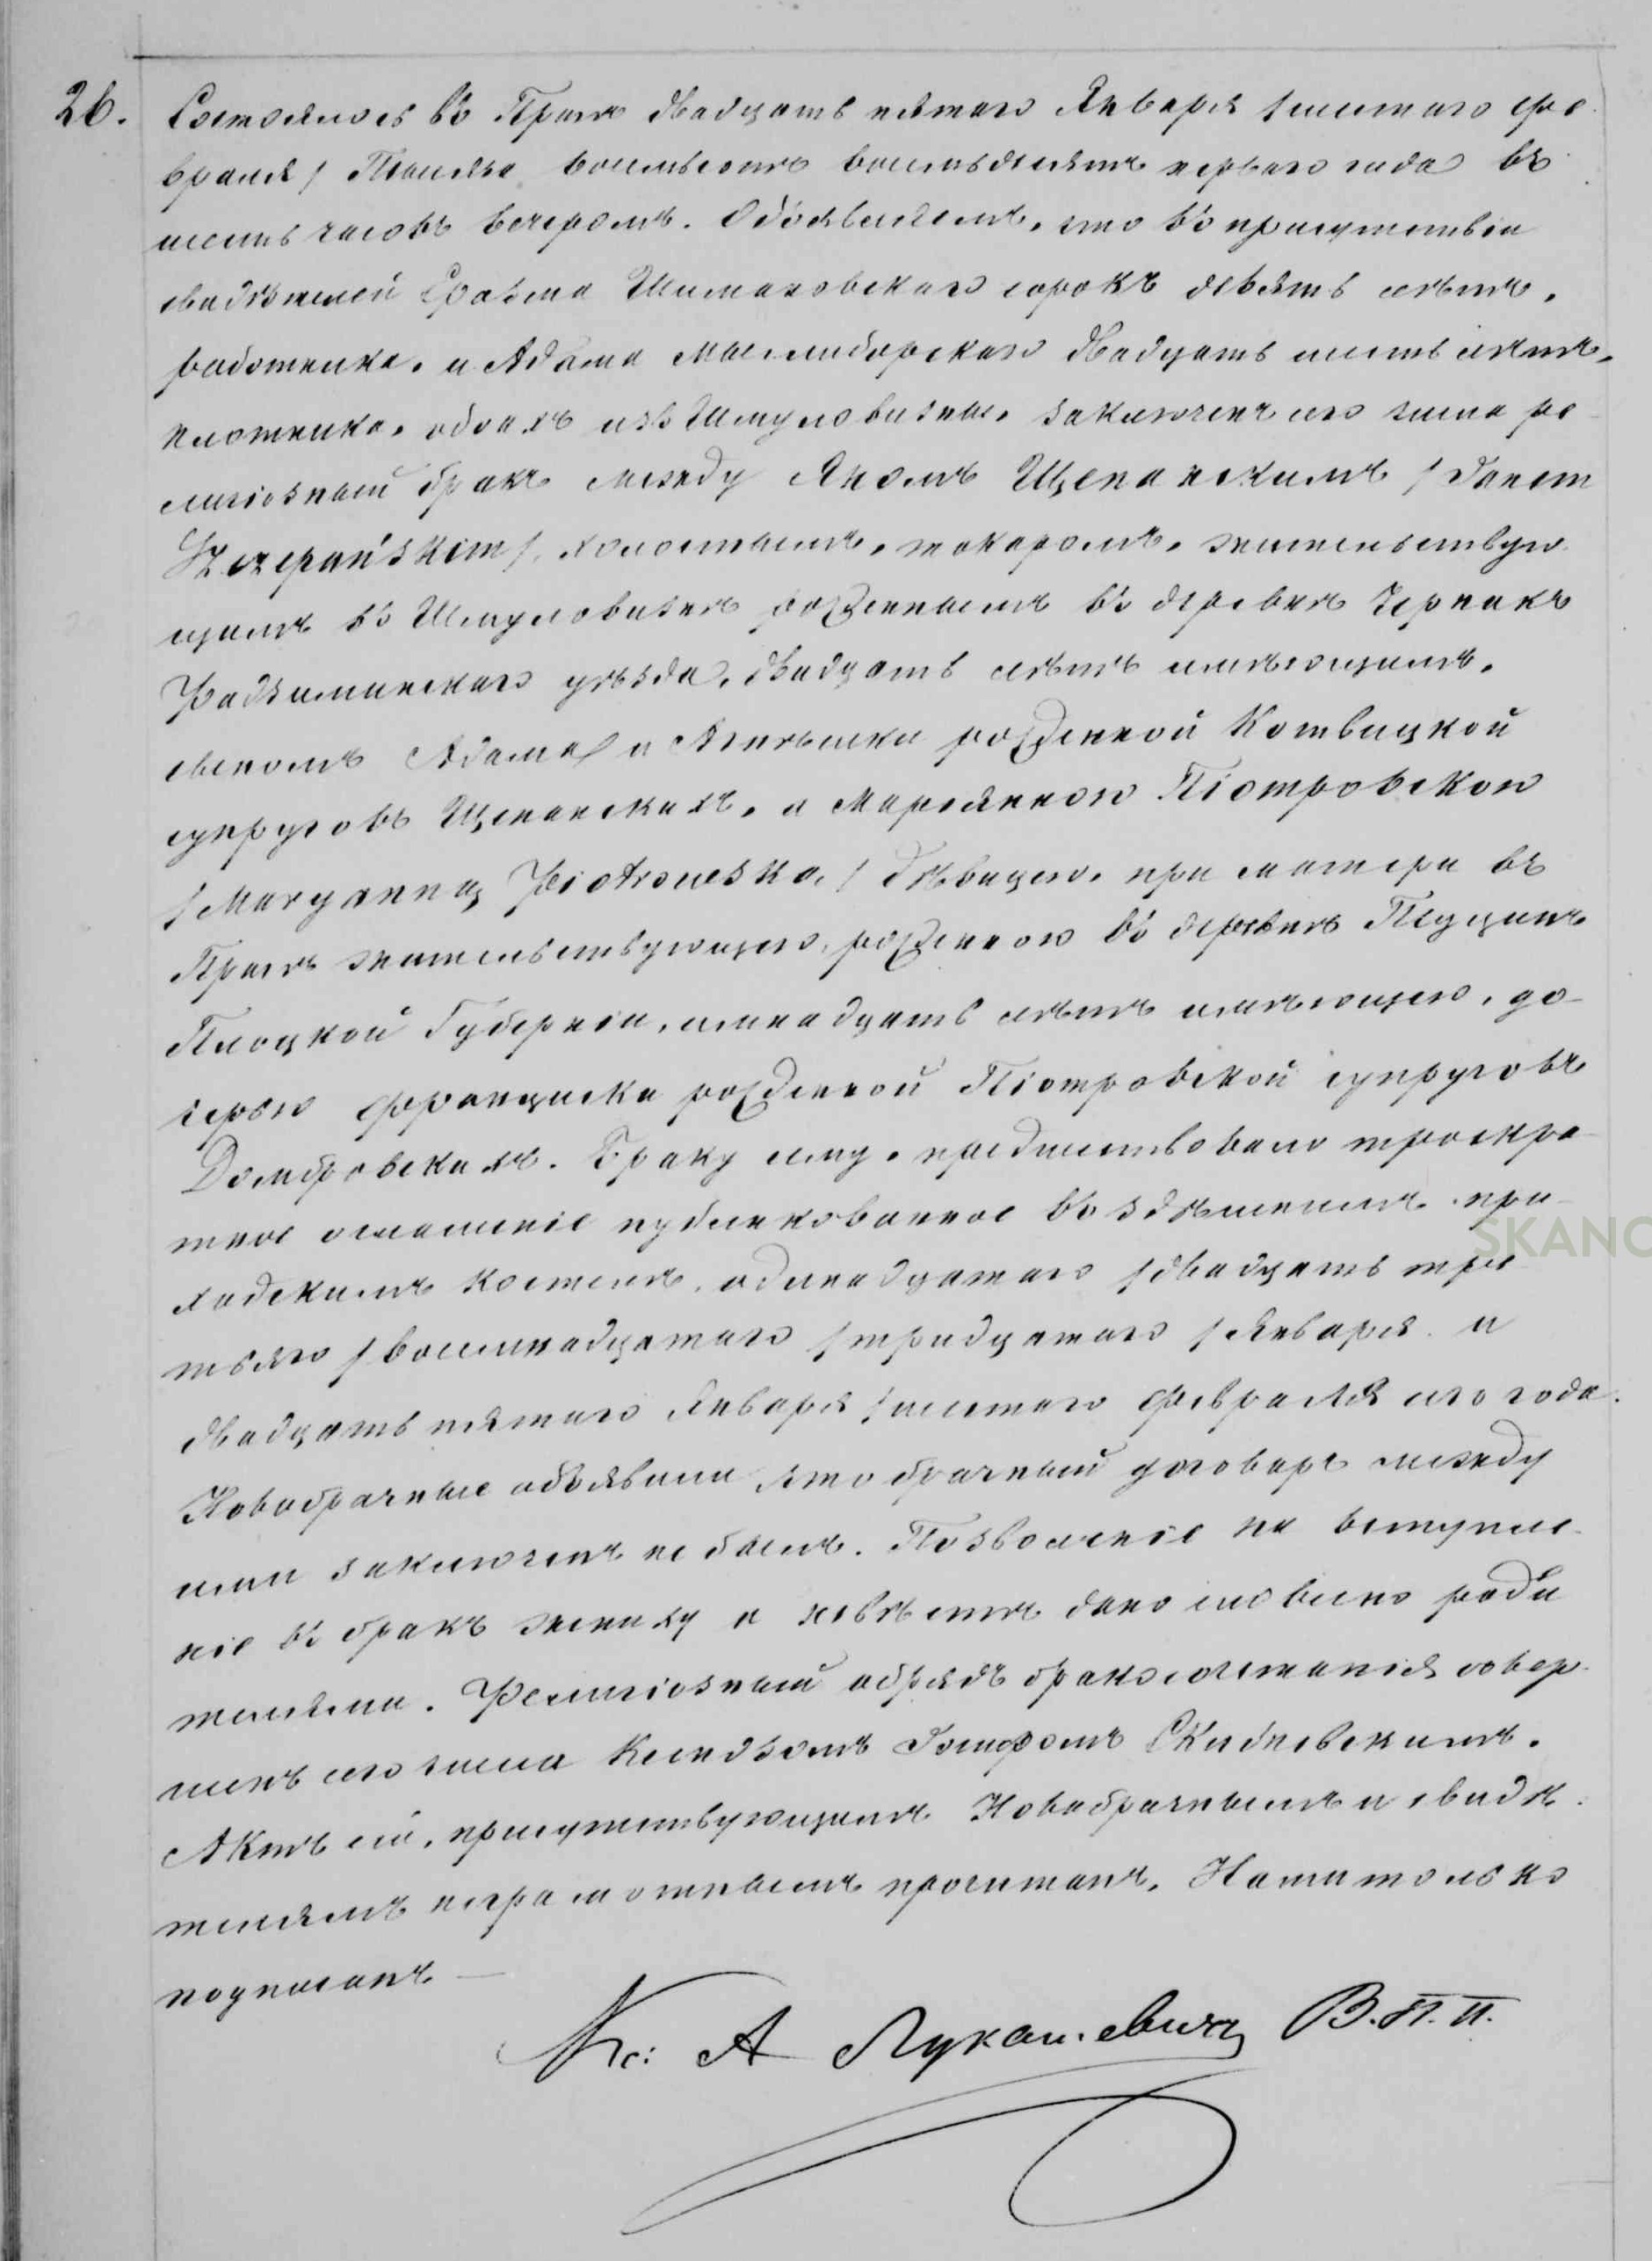 26. Состоялось въ Прагѣ двадцать пятаго Января /шестаго Фе-
враля/ Тысяча восемьсотъ восемьдесятъ перваго года въ
шесть часовъ вечеромъ. Объявляемъ, что въ присутствіи
свидѣтелей Шимановскаго сорокъ девять лѣтъ,
работника, и Адама двадцать шесть лѣтъ,
плотника, обоихъ изъ Шмуловизны, заключенъ сего числа ре-
лигіозный бракъ между Яномъ Щепанскимъ /Janem
Szczepańskim/, холостымъ, токаромъ, жительствую-
щимъ въ Шмуловизнѣ рожденнымъ въ деревнѣ Чернакъ
Радзиминскаго уѣзда, двадцать лѣтъ имѣющимъ,
сыномъ Адама и Агнѣшки рожденной Котвицкой
супруговъ Щепанскихъ, и Маріянною Піотровскою
/Maryanną Piotrowską/ дѣвицею, при матери въ
Прагѣ жительствующею, рожденною въ деревнѣ
Плоцкой Губерніи, лѣтъ имѣющею, до-
черью Францишки рожденной Піотровской супруговъ
Домбровскихъ. Браку сему, предшествовало троекра-
тное оглашеніе публикованное въ здѣшнемъ при-
ходскимъ костелѣ, одинадцатаго /двадцать тре-
тьяго/ восемнадцатаго /тридцатаго/ Января и
двадцать пятаго Января /шестаго Февраля сего года.
Новобрачные объявили, что брачный договоръ между
ими заключенъ не былъ. Позволеніе на вступле-
ніе въ бракъ жениху и невѣстѣ дано словесно роди-
телями. Религіозный обрядъ бракосочетанія совер-
шенъ сего числа Ксендзомъ Іосифомъ Скибневскимъ.
Актъ сей, присутствующимъ Новобрачнымъ и свидѣ-
телямъ неграмотнымъ прочитанъ, Нами только
подписанъ —
Кс: А Лукашевичъ В.П.П.
SKANO